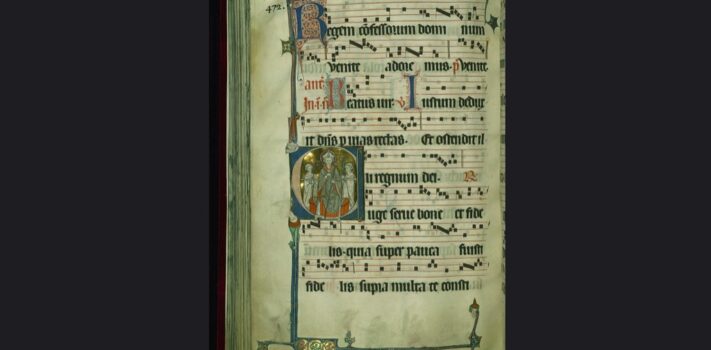 472.
Regem cōfessorum domi num
venite adore mus. p̄ venite
ant̄
In .i. n̄ Beatus uir. v Iustum deduxe
it dn̄s p uias rectas. Et ostendit il
li regnum dei. R
Euge serue bone et fide
lis. quia super pauca fuisti
fide lis supra multa te consti